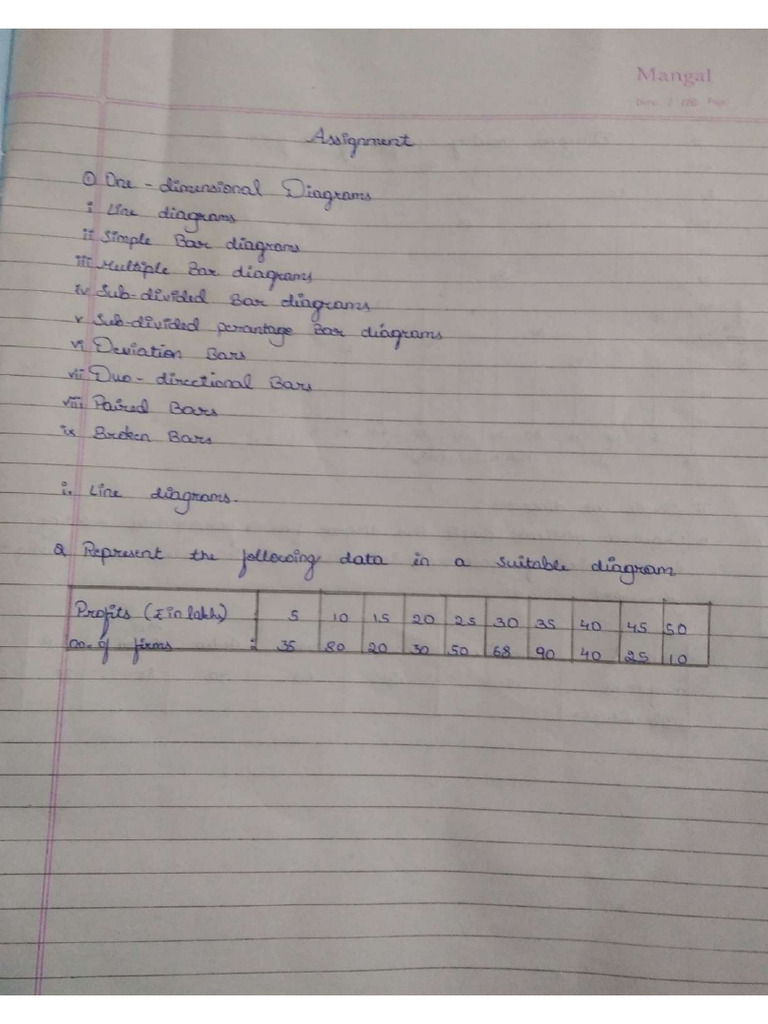 Mangal
Assignment
① One-dimensional Diagrams
i Line diagrams
ii Simple Bar diagrams
iii Multiple Bar diagrams
iv Sub-divided Bar diagrams
v Sub-divided perantage Bar diagrams
vi Deviation Bars
vii Duo-directional Bars
viii Paired Bars
ix Broken Bars
i. Line diagrams.
Q Represent the following data in a suitable diagram
Profits (₹ in lakhs) : 5 10 15 20 25 30 35 40 45 50
no. of firms : 35 80 20 30 50 68 90 40 25 10